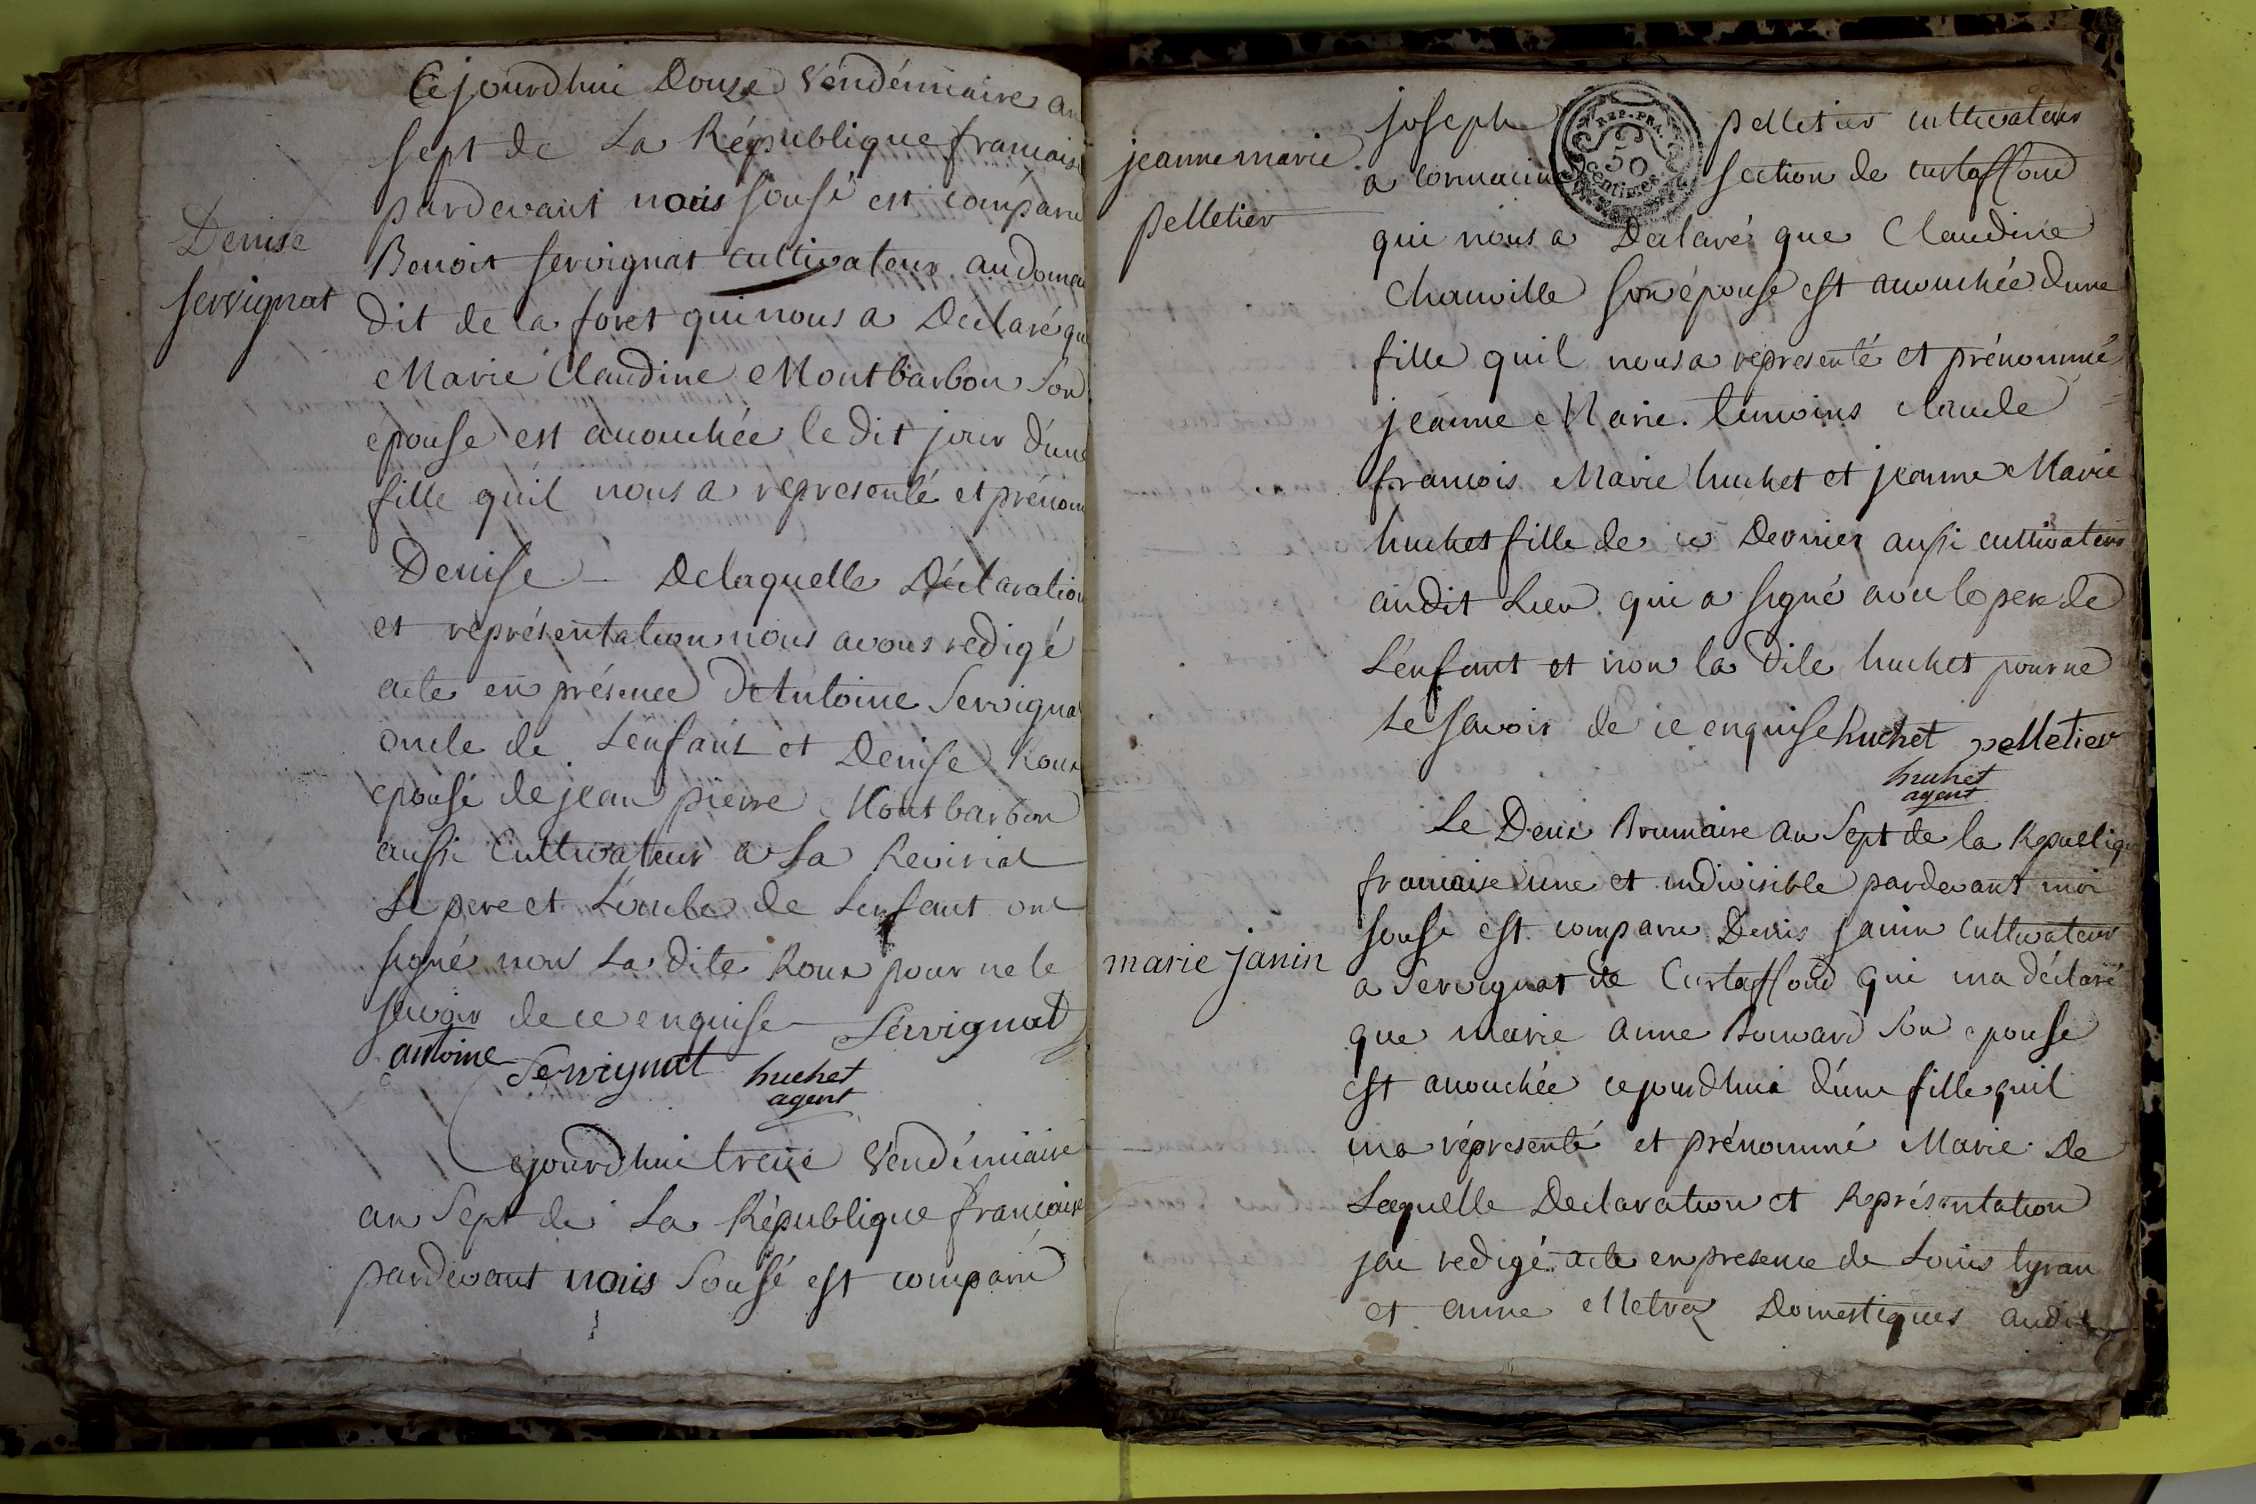 Denise
servignat
Cejourdhui Douze Vendémiaire an
sept de La République francaise
pardevant nous sousé est comparu
Benoit servignat cultivateur au domai
dit de la foret qui nous a Déclaré que
Marie Claudine Montbarbon son
epouse est accouchée le dit jour d'une
fille quil nous a representé et prénom
Denise - De laquelle Déclaration
et représentation nous avons redigé
acte en présence d'Antoine Servigna
oncle de L'enfant et Denise Roux
epouse de jean pierre Montbarbon
aussi Cultivateur a La Reviriat
Le pere et L'oncle de Lenfant ont
signé non La dite Roux pour ne le
savoir de ce enquise Servignat
antoine Servignat huchet
agent
Cejourdhui treize Vendémiaire
an Sept de La République francaise
pardevant nous Sousé est comparu
jeanne marie
pelletier
joseph pelletier cultivateur
REP. FRA.
50
centimes
a cormacin section de curtaffond
qui nous a Déclaré que Claudine
Chanville son épouse est accouchée d'une
fille quil nous a representé et prénommé
jeanne Marie. temoins claude
francois Marie huchet et jeanne Marie
huchet fille de ce Dernier aussi cultivateur
audit Lieu qui a signé avec le pere de
L'enfant et non la dite huchet pour ne
Le savoir de ce enquise huchet pelletier
huchet
agent
marie janin
Le Deux Brumaire an Sept de la Republiq
francaise une et indivisible pardevant moi
sousé est comparu Denis janin Cultivateur
a Servignat de Curtaffond qui ma déclaré
que marie anne son epouse
est accouchée cejourdhui d'une fille quil
ma répresenté et prénommé Marie De
Laquelle Declaration et Représentation
jai redigé acte en presence de Louis tyran
et anne Metraz Domestiques audit